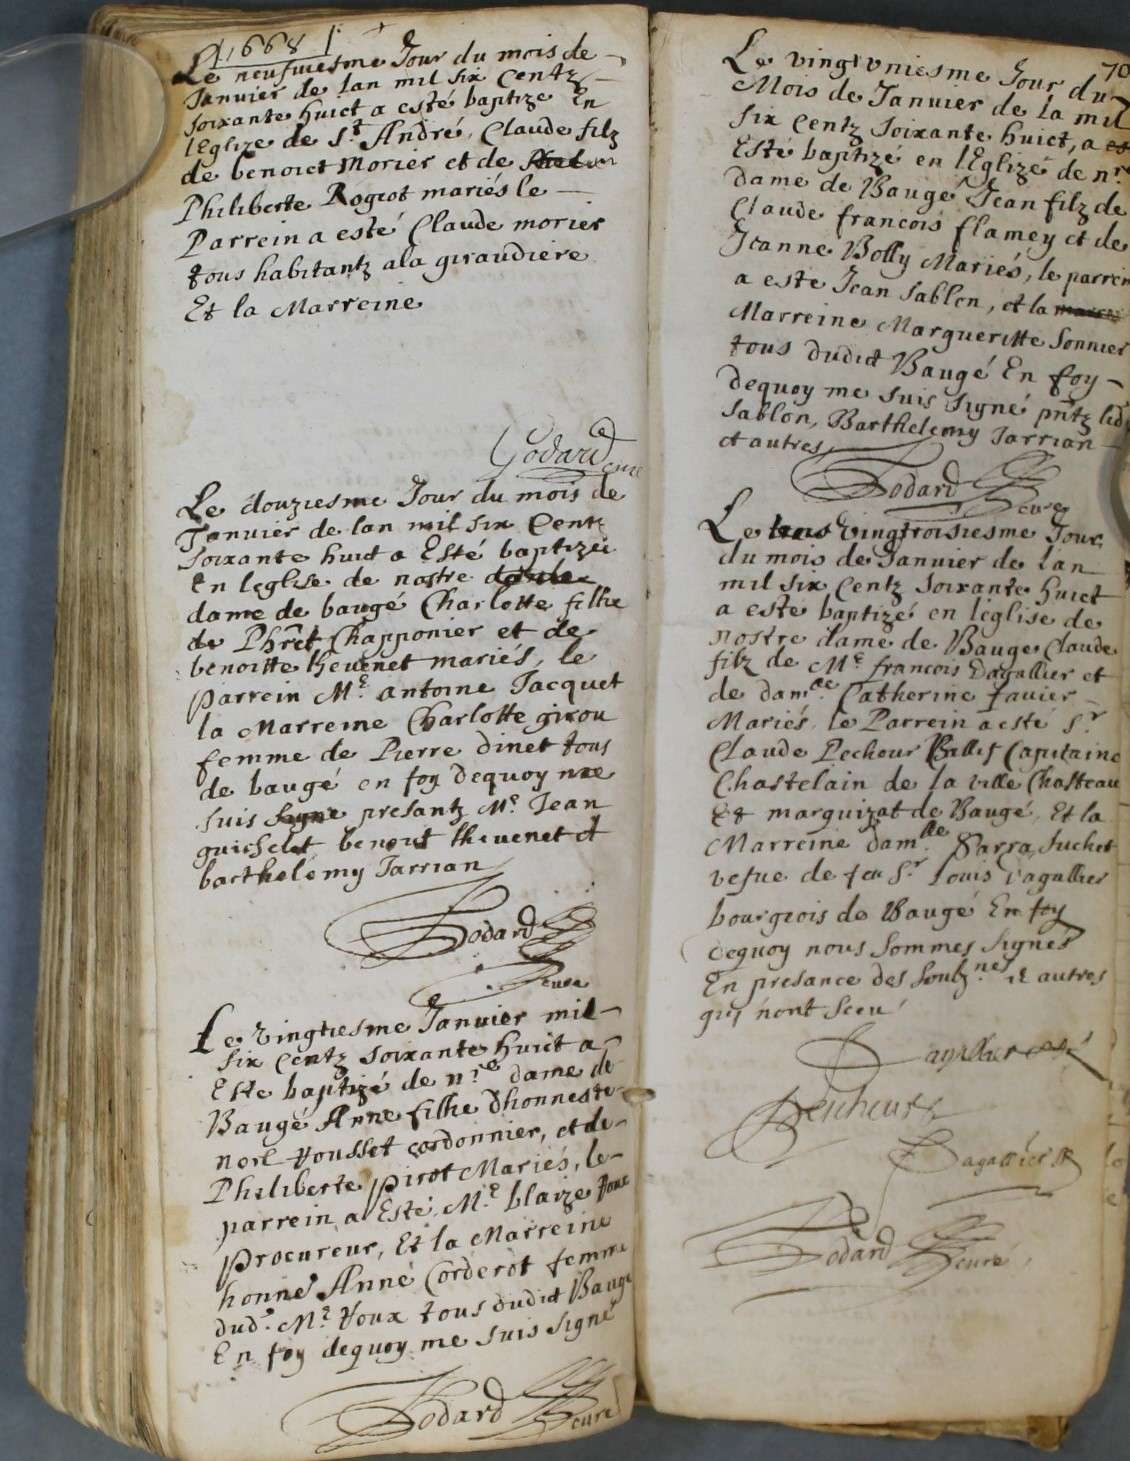 1668
Le neufviesme Jour du mois de
Janvier de lan mil six Centz
soixante huict a esté baptize En
lEglize de S.t André, Claude filz
de benoict Morier et de
Philiberte Rogiot mariés le
Parrein a esté Claude morier
tous habitantz ala giraudiere
Et la Marreine
Godard curé
Le douziesme Jour du mois de
Janvier de lan mil six Centz
soixante huict a Esté baptizée
En leglise de nostre
dame de baugé Charlotte fillie
de Phret Chapponier et de
benoitte thevenet mariés, le
parrein M.e antoine Jacquet
la Marreine Charlotte girou
femme de Pierre dinet tous
de baugé en foy dequoy me
suis signe presantz M.e Jean
guichelet benoist thevenet et
barthelemy Jarrian
Godard
curé
Le vingtiesme Janvier mil
six Centz soixante huict a
Esté baptizé de n.re dame de
Baugé Anne fillie dhonneste
noel Vousset cordonnier, et de
Philiberte pirot Mariés, le
parrein a Esté M.e blaize Voux
procureur, Et la Marreine
honne Anne Corderot femme
dud. M.e Voux tous dudict Baugé
En foy dequoy me suis signé
Godard curé
70
Le vingtvniesme Jour du
Mois de Janvier de la mil
six Centz soixante huict, a
Esté baptizé en lEglizé de n.re
dame de Baugé Jean filz de
Claude francois flamey et de
Jeanne Bolly Mariés, le parrein
a este Jean sablon, et la
Marreine Margueritte Sonnier
tous dudict Baugé En foy
dequoy me suis signé pntz led
sablon, Barthelemy Jarrian
et autres
Godard
curé
Le vingtroisiesme Jour
du mois de Janvier de lan
mil six Centz soixante huict
a este baptizé en léglise de
nostre dame de Bauge Claude
filz de M.e francois Dagallier et
de dam.lle Catherine favier
Mariés le Parrein a esté S.r
Claude Pecheur Baillif Capitaine
Chastelain de la ville Chasteau
Et marquizat de Baugé, Et la
Marreine dam.lle Sarra Suchet
vefue de feu S.r Louis Dagallier
bourgeois de Baugé En foy
dequoy nous sommes signés
En presance des soubz.nes et autres
qui nont sceu
Pecheur
Dagallier
Godard curé